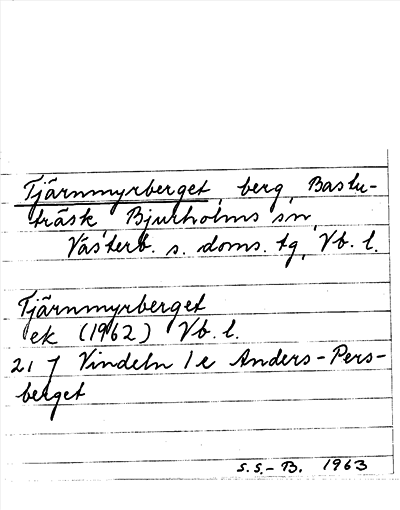 Tjärnmyrberget, berg, Bastu-
träsk, Bjurholms sn,
Västerb. s. doms. tg, Vb. l.
Tjärnmyrberget
ek (1962) Vb. l.
21 J Vindeln 1 e Anders-Pers-
berget
S.S.-B. 1963